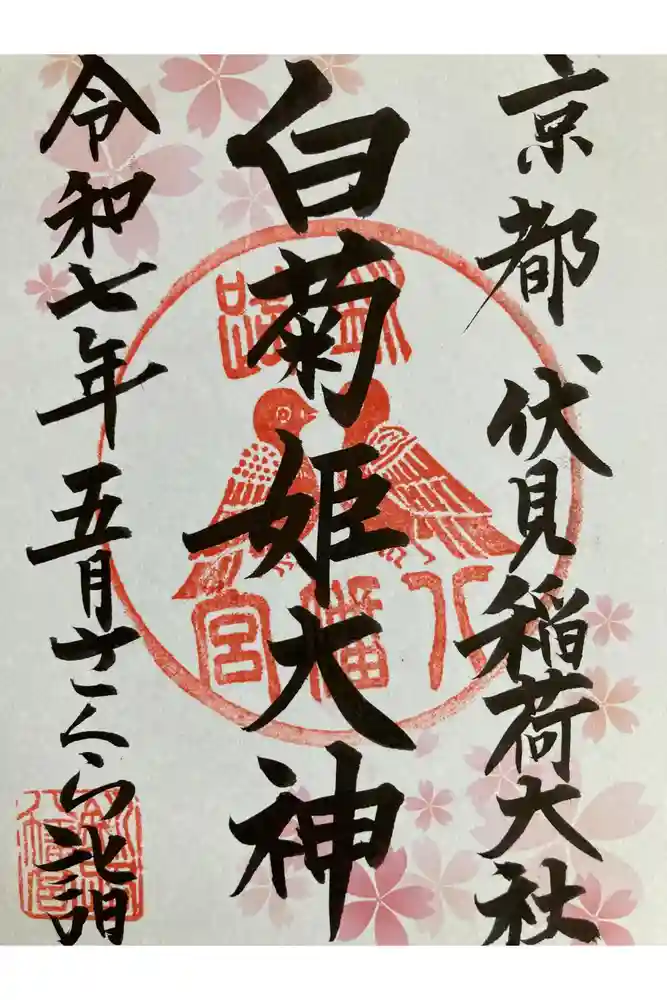 京都伏見稲荷大社
白菊姫大神
令和七年五月さくら詣
八幡宮